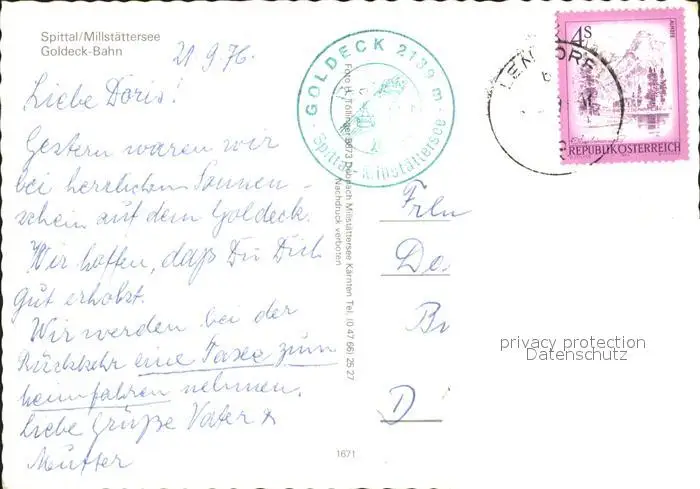 Spittal/Millstättersee
Goldeck-Bahn
21.9.76.
Liebe Doris!
Gestern waren wir
bei herrlichem Sonnen-
schein auf dem Goldeck.
Wir hoffen, daß Du Dich
gut erholst.
Wir werden bei der
Rückkehr eine Taxe zum
heimfahren nehmen.
Liebe Grüße Vater &
Mutter
GOLDECK 2139 m
Spittal Millstättersee
Nachdruck verboten
Millstättersee Kärnten Tel. (0 47 66) 25 27
1671
4S
REPUBLIK ÖSTERREICH
Frln
Do
D
privacy protection
Datenschutz